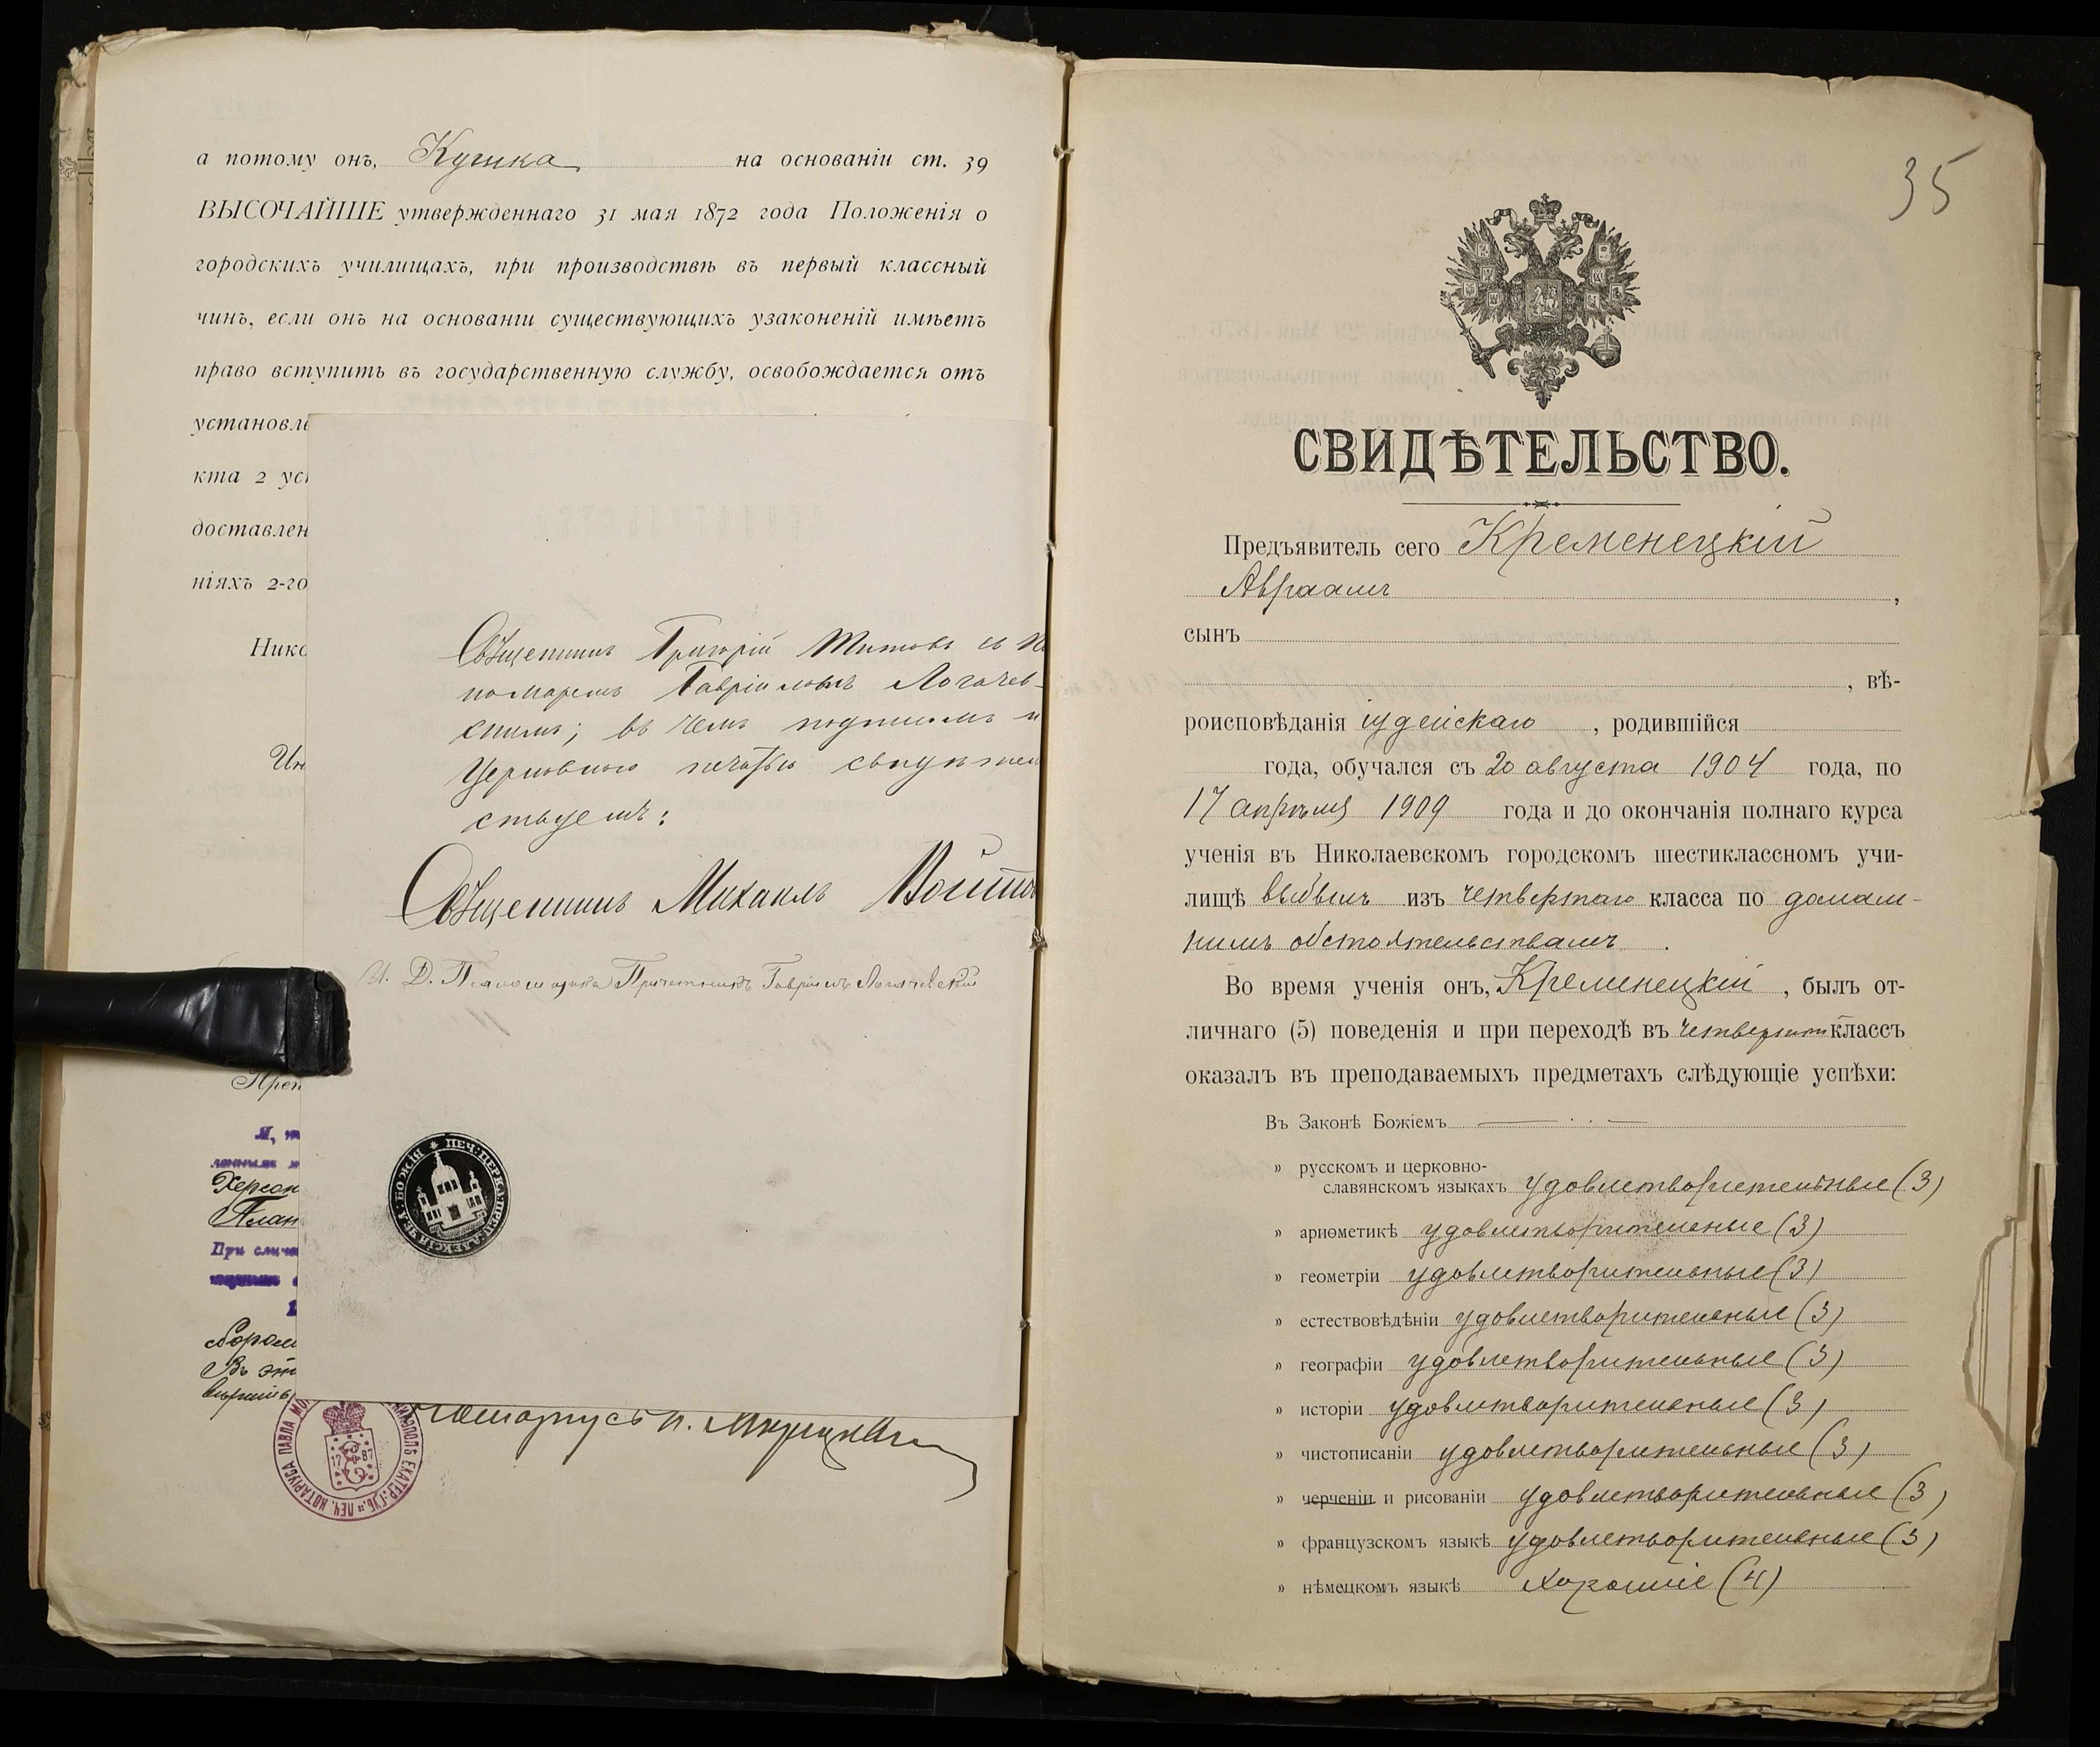 а потому онъ, Кушка на основаніи ст. 39
ВЫСОЧАЙШЕ утвержденнаго 31 мая 1872 года Положенія о
городскихъ училищахъ, при производствѣ въ первый классный
чинъ, если онъ на основаніи существующихъ узаконеній имѣетъ
право вступить въ государственную службу, освобождается отъ
установле
кта 2 ус
доставлен
ніяхъ 2-го
Нико
Ин
Священникъ Григорій Титовъ съ
номаремъ Гавріиломъ Логачев-
скимъ; въ чемъ подписомъ и
Церковною печатью свидѣтел
ствуемъ:
Священникъ Михаилъ
И. Д. Псаломщика Причетникъ Гавріилъ Логачевскій
Преп
Я, н
Херсон
При сличе
Въ эт
Нотаріусъ П.
17 87
35
СВИДѢТЕЛЬСТВО.
Предъявитель сего Кременецкій
Авраамъ ,
сынъ
, вѣ-
роисповѣданія іудейскаго , родившійся
года, обучался съ 20 августа 1904 года, по
17 апрѣля 1909 года и до окончанія полнаго курса
ученія въ Николаевскомъ городскомъ шестиклассномъ учи-
лищѣ выбылъ изъ четвертаго класса по домаш-
нимъ обстоятельствамъ .
Во время ученія онъ, Кременецкій , былъ от-
личнаго (5) поведенія и при переходѣ въ четвертый классъ
оказалъ въ преподаваемыхъ предметахъ слѣдующіе успѣхи:
Въ Законѣ Божіемъ —
» русскомъ и церковно-
славянскомъ языкахъ удовлетворительные (3)
» ариѳметикѣ удовлетворительные (3)
» геометріи удовлетворительные (3)
» естествовѣдѣніи удовлетворительные (3)
» географіи удовлетворительные (3)
» исторіи удовлетворительные (3)
» чистописаніи удовлетворительные (3)
» черченіи и рисованіи удовлетворительные (3)
» французскомъ языкѣ удовлетворительные (3)
» нѣмецкомъ языкѣ хорошіе (4)